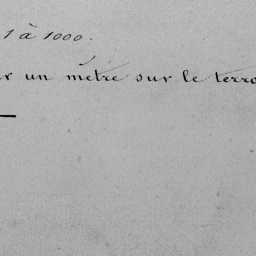 1 à 1000.
r un mètre sur le terra